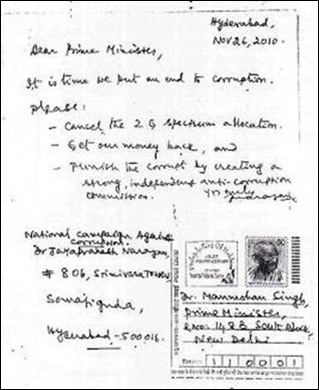 Hyderabad,
Nov 26, 2010.
Dear Prime Minister,
It is time we put an end to corruption.
Please:
- Cancel the 2 G spectrum allocation.
- Get our money back, and
- Punish the corrupt by creating a
strong, independent anti-corruption
commission.
National Campaign Against
Corruption
Dr Jayaprakash Narayan,
# 806, Srinivasa Towers
Somajiguda,
Hyderabad - 500016.
POST CARD
Dr. Manmohan Singh,
Prime Minister,
South Block,
New Delhi
110001